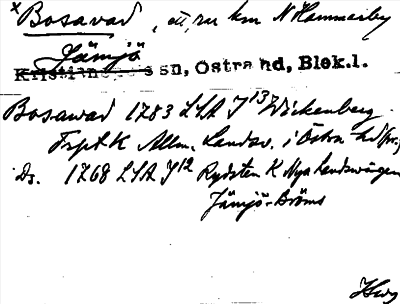 × Bosavad, ött, nu km N Hammarby
Jämjö
Kristian sn, Östra hd, Blek.l.
Bosawad 1783 LSA J13 Wickenberg.
Frpt K Allm. Landsv. i Östra hd
Ds. 1768 LSA J12 Rydsten K Nya Landsvägen
Jämjö-Bröms